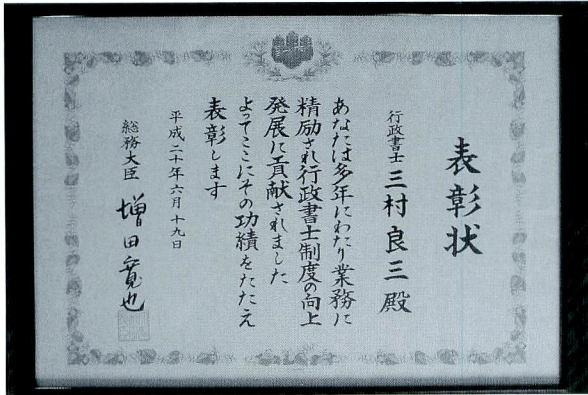 表彰状
行政書士 三村良三 殿
あなたは多年にわたり業務に
精励され行政書士制度の向上
発展に貢献されました
よってここにその功績をたたえ
表彰します
平成二十年六月十九日
総務大臣 増田寛也